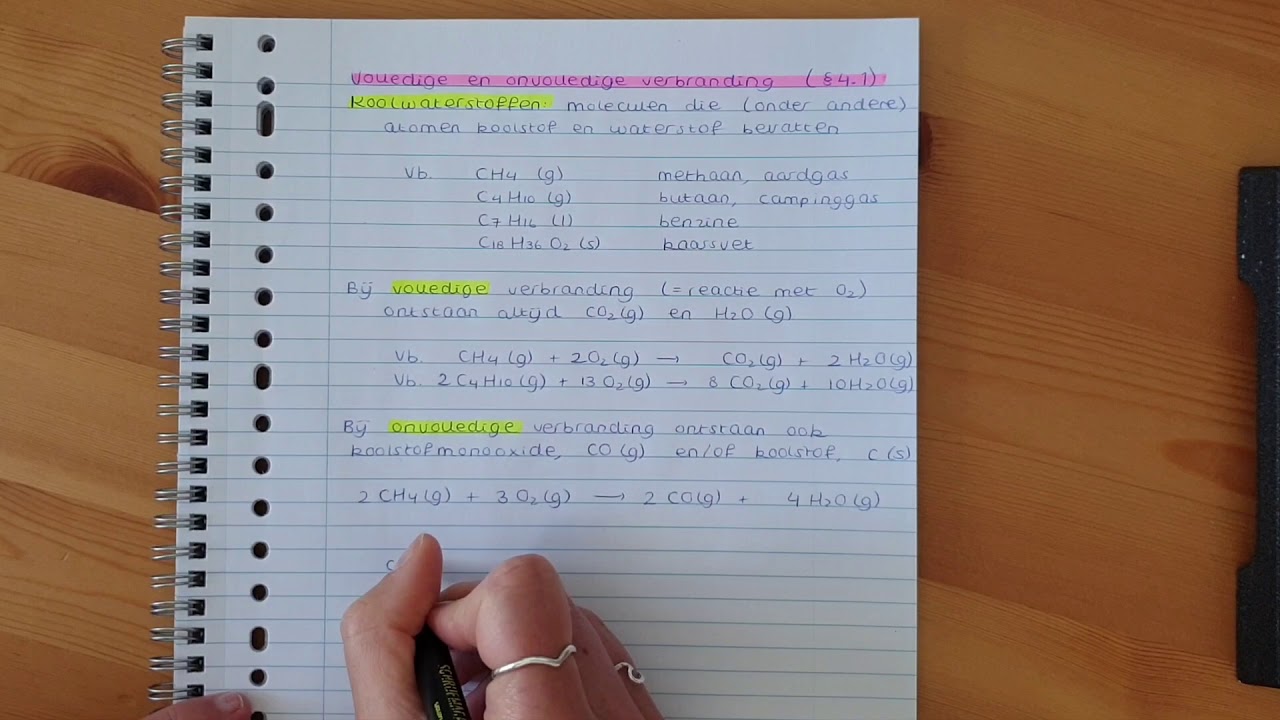 Volledige en onvolledige verbranding (§4.1)
Koolwaterstoffen: moleculen die (onder andere)
atomen koolstof en waterstof bevatten
Vb. CH4 (g) methaan, aardgas
C4H10 (g) butaan, campinggas
C7H16 (l) benzine
C18H36O2 (s) kaarsvet
Bij volledige verbranding (= reactie met O2)
ontstaan altijd CO2(g) en H2O (g)
Vb. CH4 (g) + 2O2(g) → CO2(g) + 2 H2O(g)
Vb. 2 C4H10(g) + 13 O2(g) → 8 CO2(g) + 10H2O(g)
Bij onvolledige verbranding ontstaan ook
koolstofmonooxide, CO (g) en/of koolstof, C (s)
2 CH4(g) + 3 O2(g) → 2 CO(g) + 4 H2O(g)
C